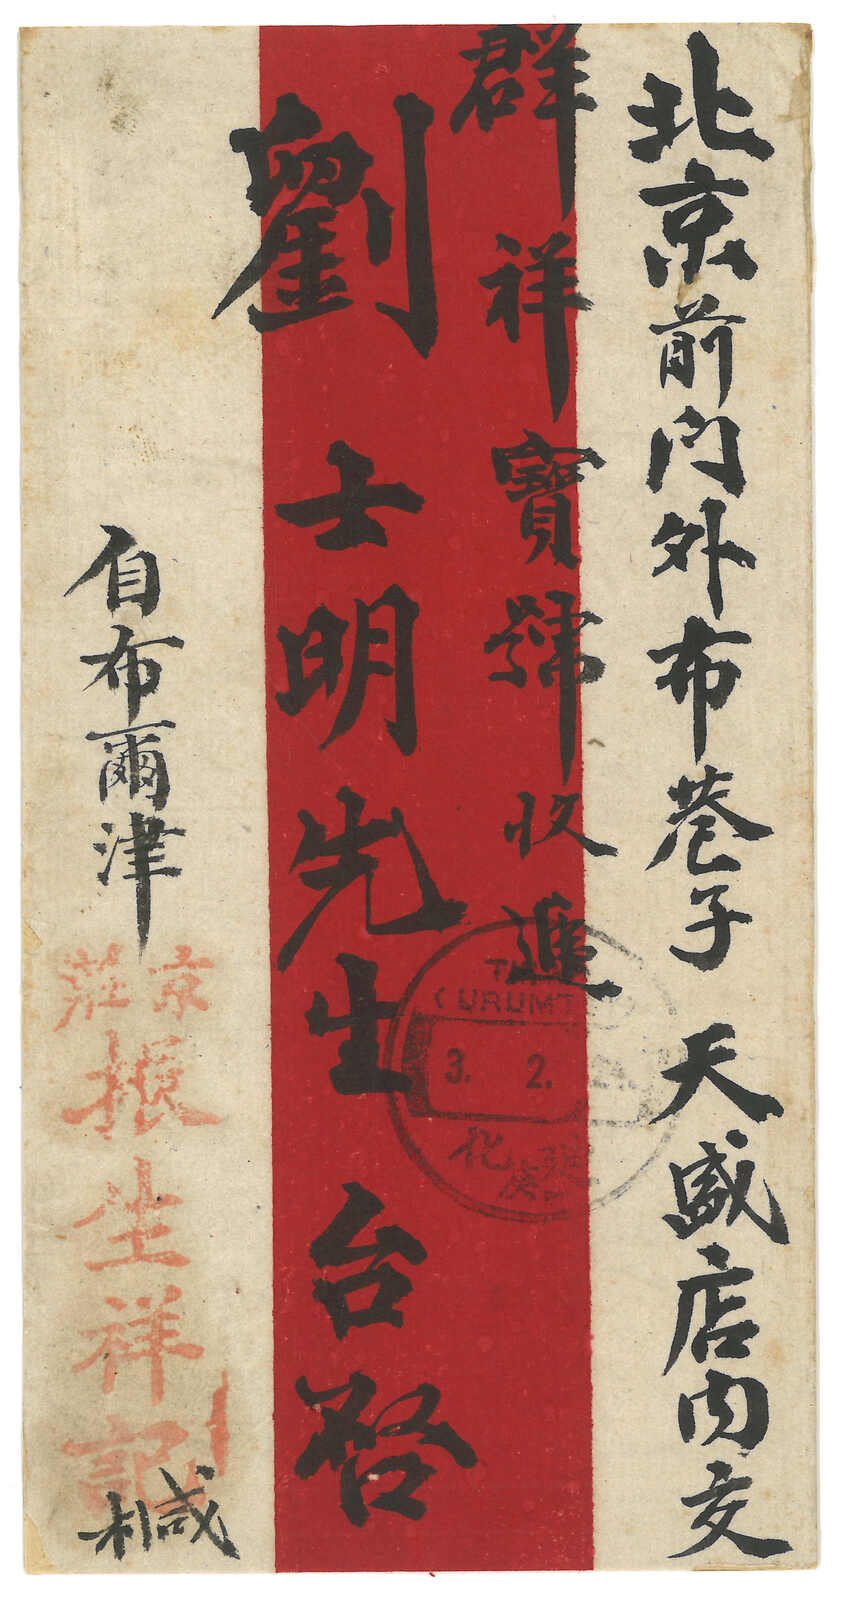 北京前門外布巷子天盛店內交
群祥寶號收進
劉士明先生台啓
自布爾津
京莊
振生祥記
椷
URUMT
3. 2.
化